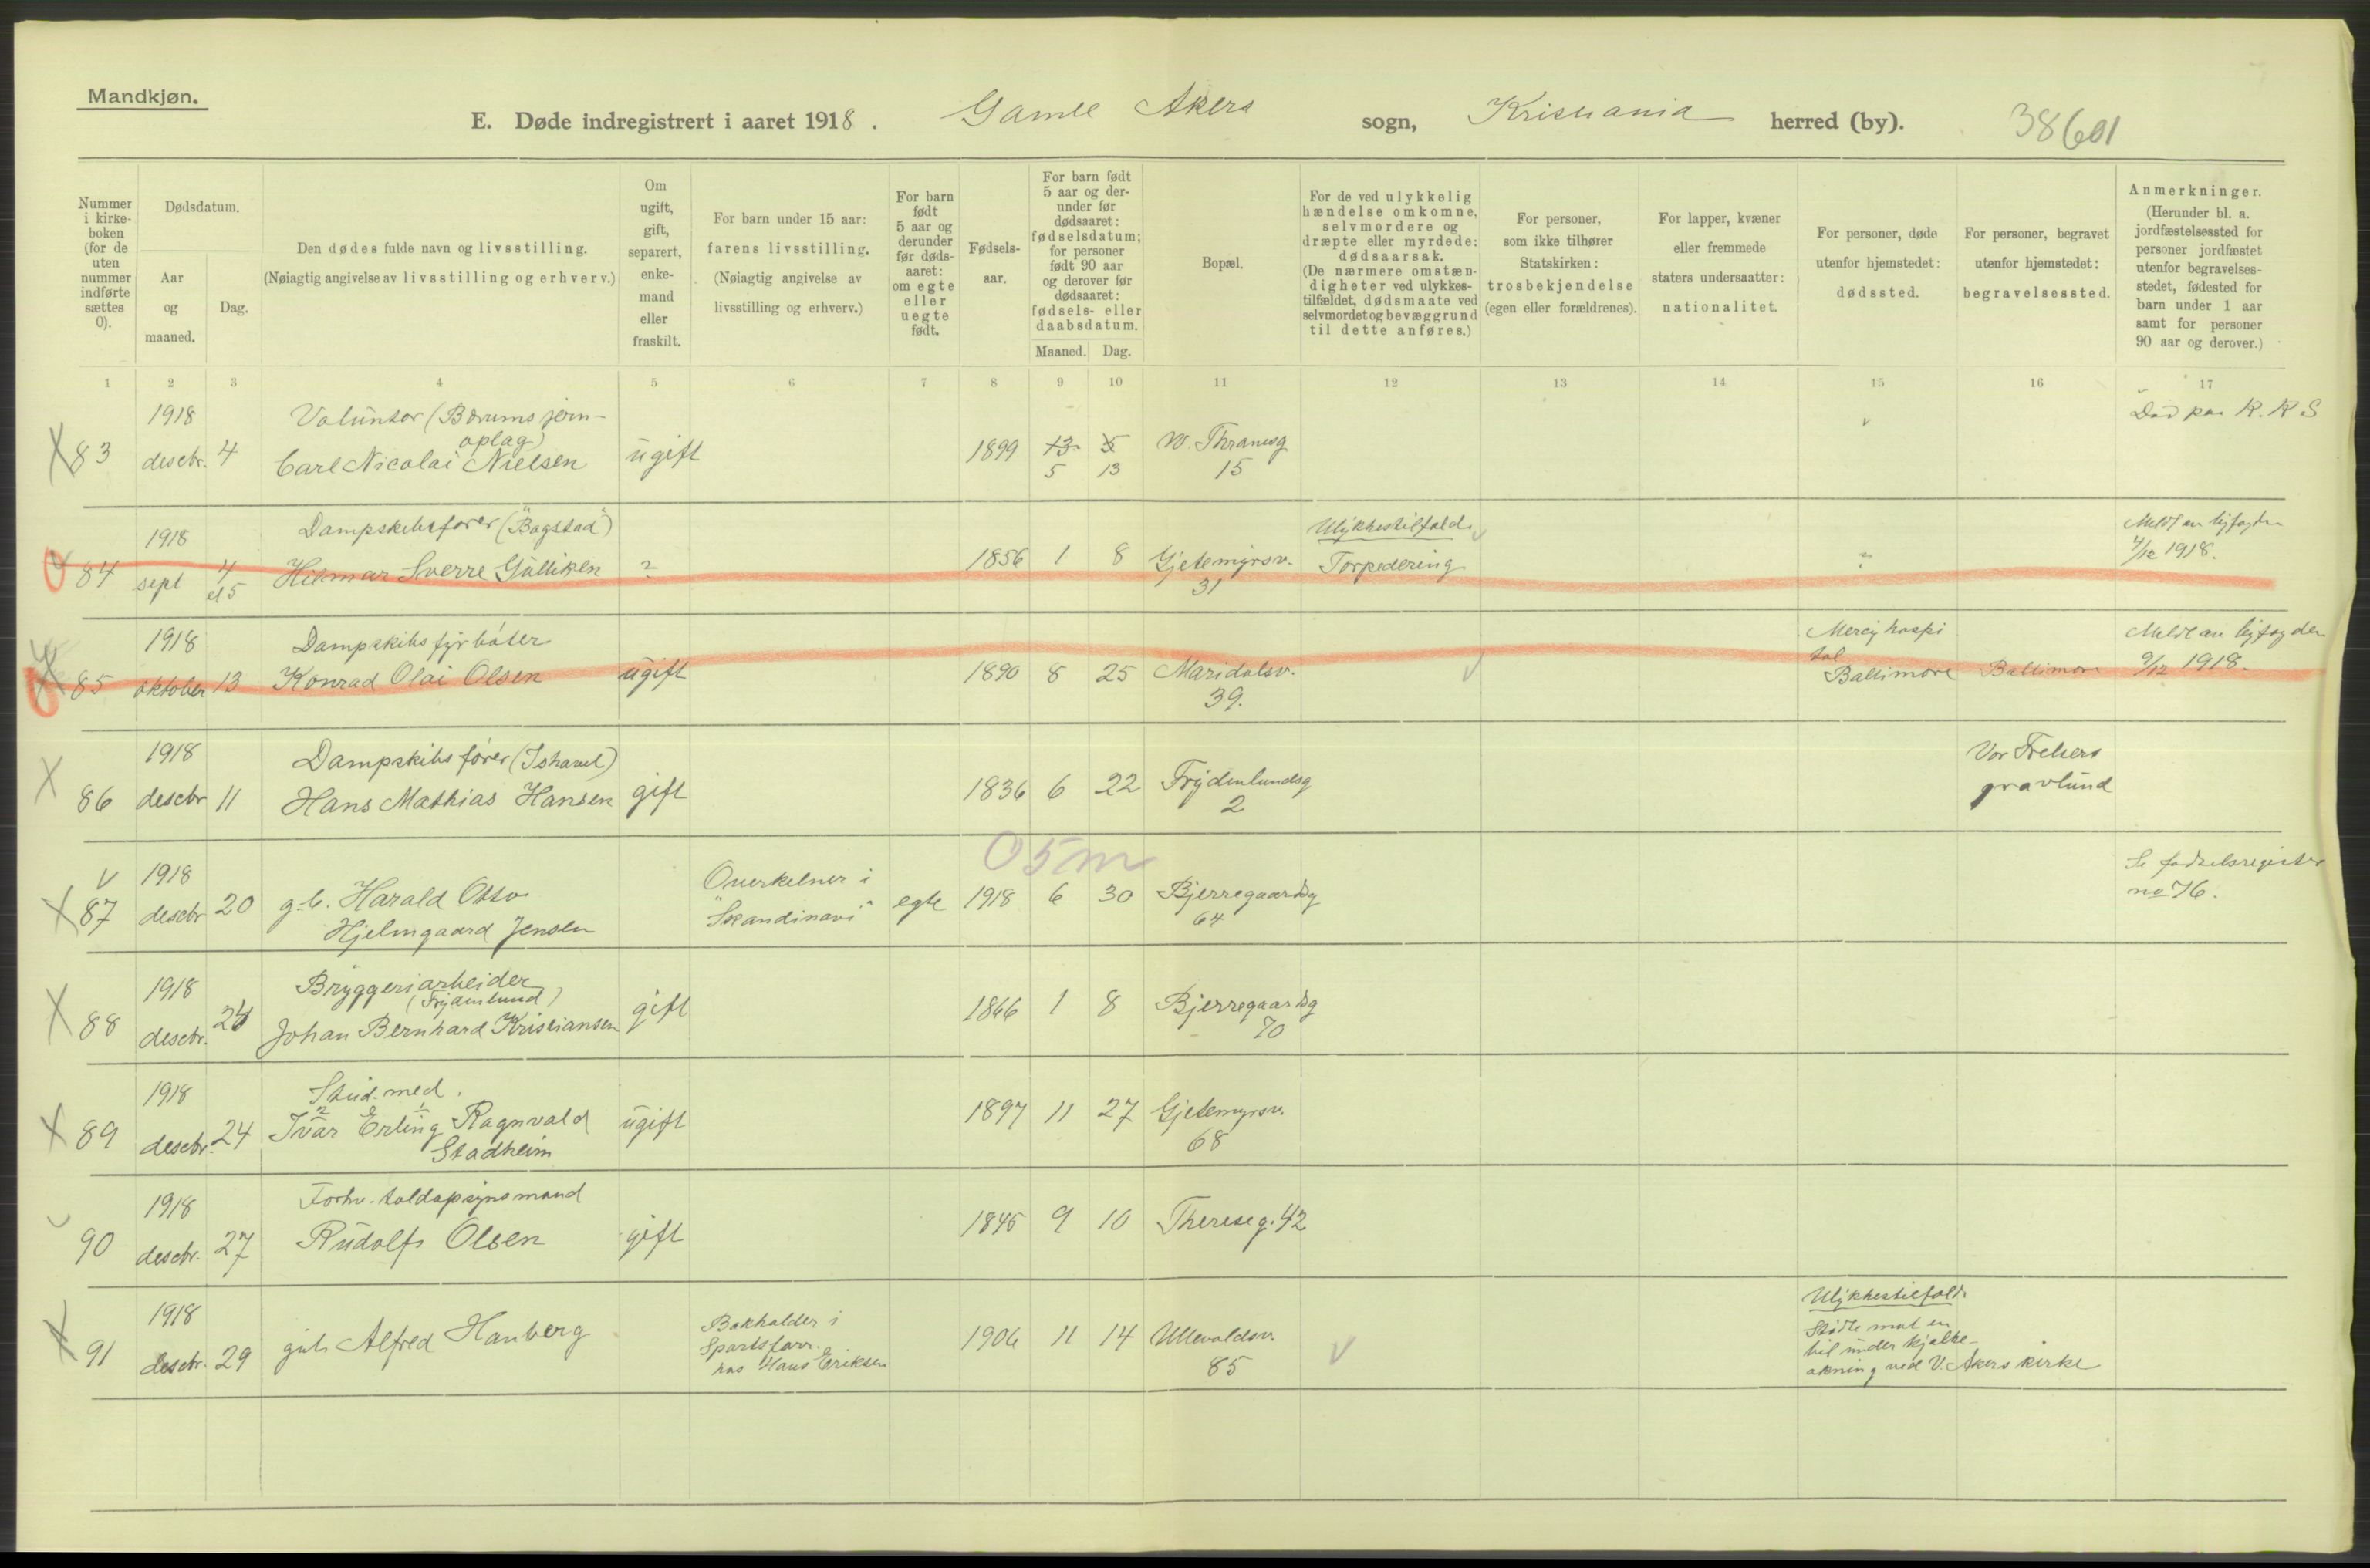 Mandkjøn.
E. Døde indregistrert i aaret 1918. Gamle Akers sogn, Kristiania herred (by). 38601
Nummer i kirke-boken (for de uten nummer indførte sættes 0).
Dødsdatum.
Aar og maaned.
Dag.
Den dødes fulde navn og livsstilling.
(Nøiagtig angivelse av livsstilling og erhverv.)
Om ugift, gift, separert, enke-mand eller fraskilt.
For barn under 15 aar:
farens livsstilling.
(Nøiagtig angivelse av livsstilling og erhverv.)
For barn født 5 aar og derunder før døds-aaret: om egte eller uegte født.
Fødsels-aar.
For barn født 5 aar og der-under før dødsaaret: fødselsdatum; for personer født 90 aar og derover før dødsaaret: fødsels- eller daabsdatum.
Maaned. Dag.
Bopæl.
For de ved ulykkelig hændelse omkomne, selvmordere og dræpte eller myrdede: dødsaarsak.
(De nærmere omstæn-digheter ved ulykkes-tilfældet, dødsmaate ved selvmordet og bevæggrund til dette anføres.)
For personer, som ikke tilhører Statskirken: trosbekjendelse (egen eller forældrenes).
For lapper, kvæner eller fremmede staters undersaatter: nationalitet.
For personer, døde utenfor hjemstedet: dødssted.
For personer, begravet utenfor hjemstedet: begravelsessted.
Anmerkninger.
(Herunder bl. a. jordfæstelsessted for personer jordfæstet utenfor begravelses-stedet, fødested for barn under 1 aar samt for personer 90 aar og derover.)
1 2 3 4 5 6 7 8 9 10 11 12 13 14 15 16 17
1918 Voluntør (Bærums jern-
oplag) Død paa K.K S
X 83 desebr. 4 Carl Nicolai Nielsen ugift 1899 13 5 W. Thranesg
5 13 15
1918 Dampskibsfører ("Bogstad") Ulykkestilfælde
84 sept 4 Hilmar Sverre Gulliksen ? 1856 1 8 Gjetemyrsv. Torpedering ? 4/12 1918.
el 5 31
1918 Dampskibsfyrbøter Mercy hospi
tal
X 85 oktober 13 Konrad Olai Olsen ugift 1890 8 25 Maridalsv. Baltimore Baltimore 9/12 1918.
39.
1918 Dampskibsfører (Ishavet) Vor Frelsers
X 86 desebr 11 Hans Mathias Hansen gift 1836 6 22 Frydenlundsg gravlund
2
05m
V 1918 Overkelner i Se fødselsregister
X 87 desebr 20 g.b. Harald Otto "Skandinavi" egte 1918 6 30 Bjerregaardsg no 76.
Hjelmgaard Jensen 64
1918 Bryggeriarbeider
(Frydenlund)
X 88 desebr. 24 Johan Bernhard Kristiansen gift 1866 1 8 Bjerregaardsg
70
1918 Stud. med.
2 1
X 89 desebr. 24 Ivar Erling Ragnvald ugift 1897 11 27 Gjetemyrsv.
Stadheim 68
1918 Forhv. toldopsynsmand
90 desebr. 27 Rudolf Olsen gift 1845 9 10 Thereseg. 42
1918 Bokholder i Ulykkestilfælde
X 91 desebr. 29 gut Alfred Hanberg Sportsforr. 1906 11 14 Ullevoldsv. Stødte mot en
hos Hans Eriksen 85 bil under kjælke-
akning ved V. Akers kirke